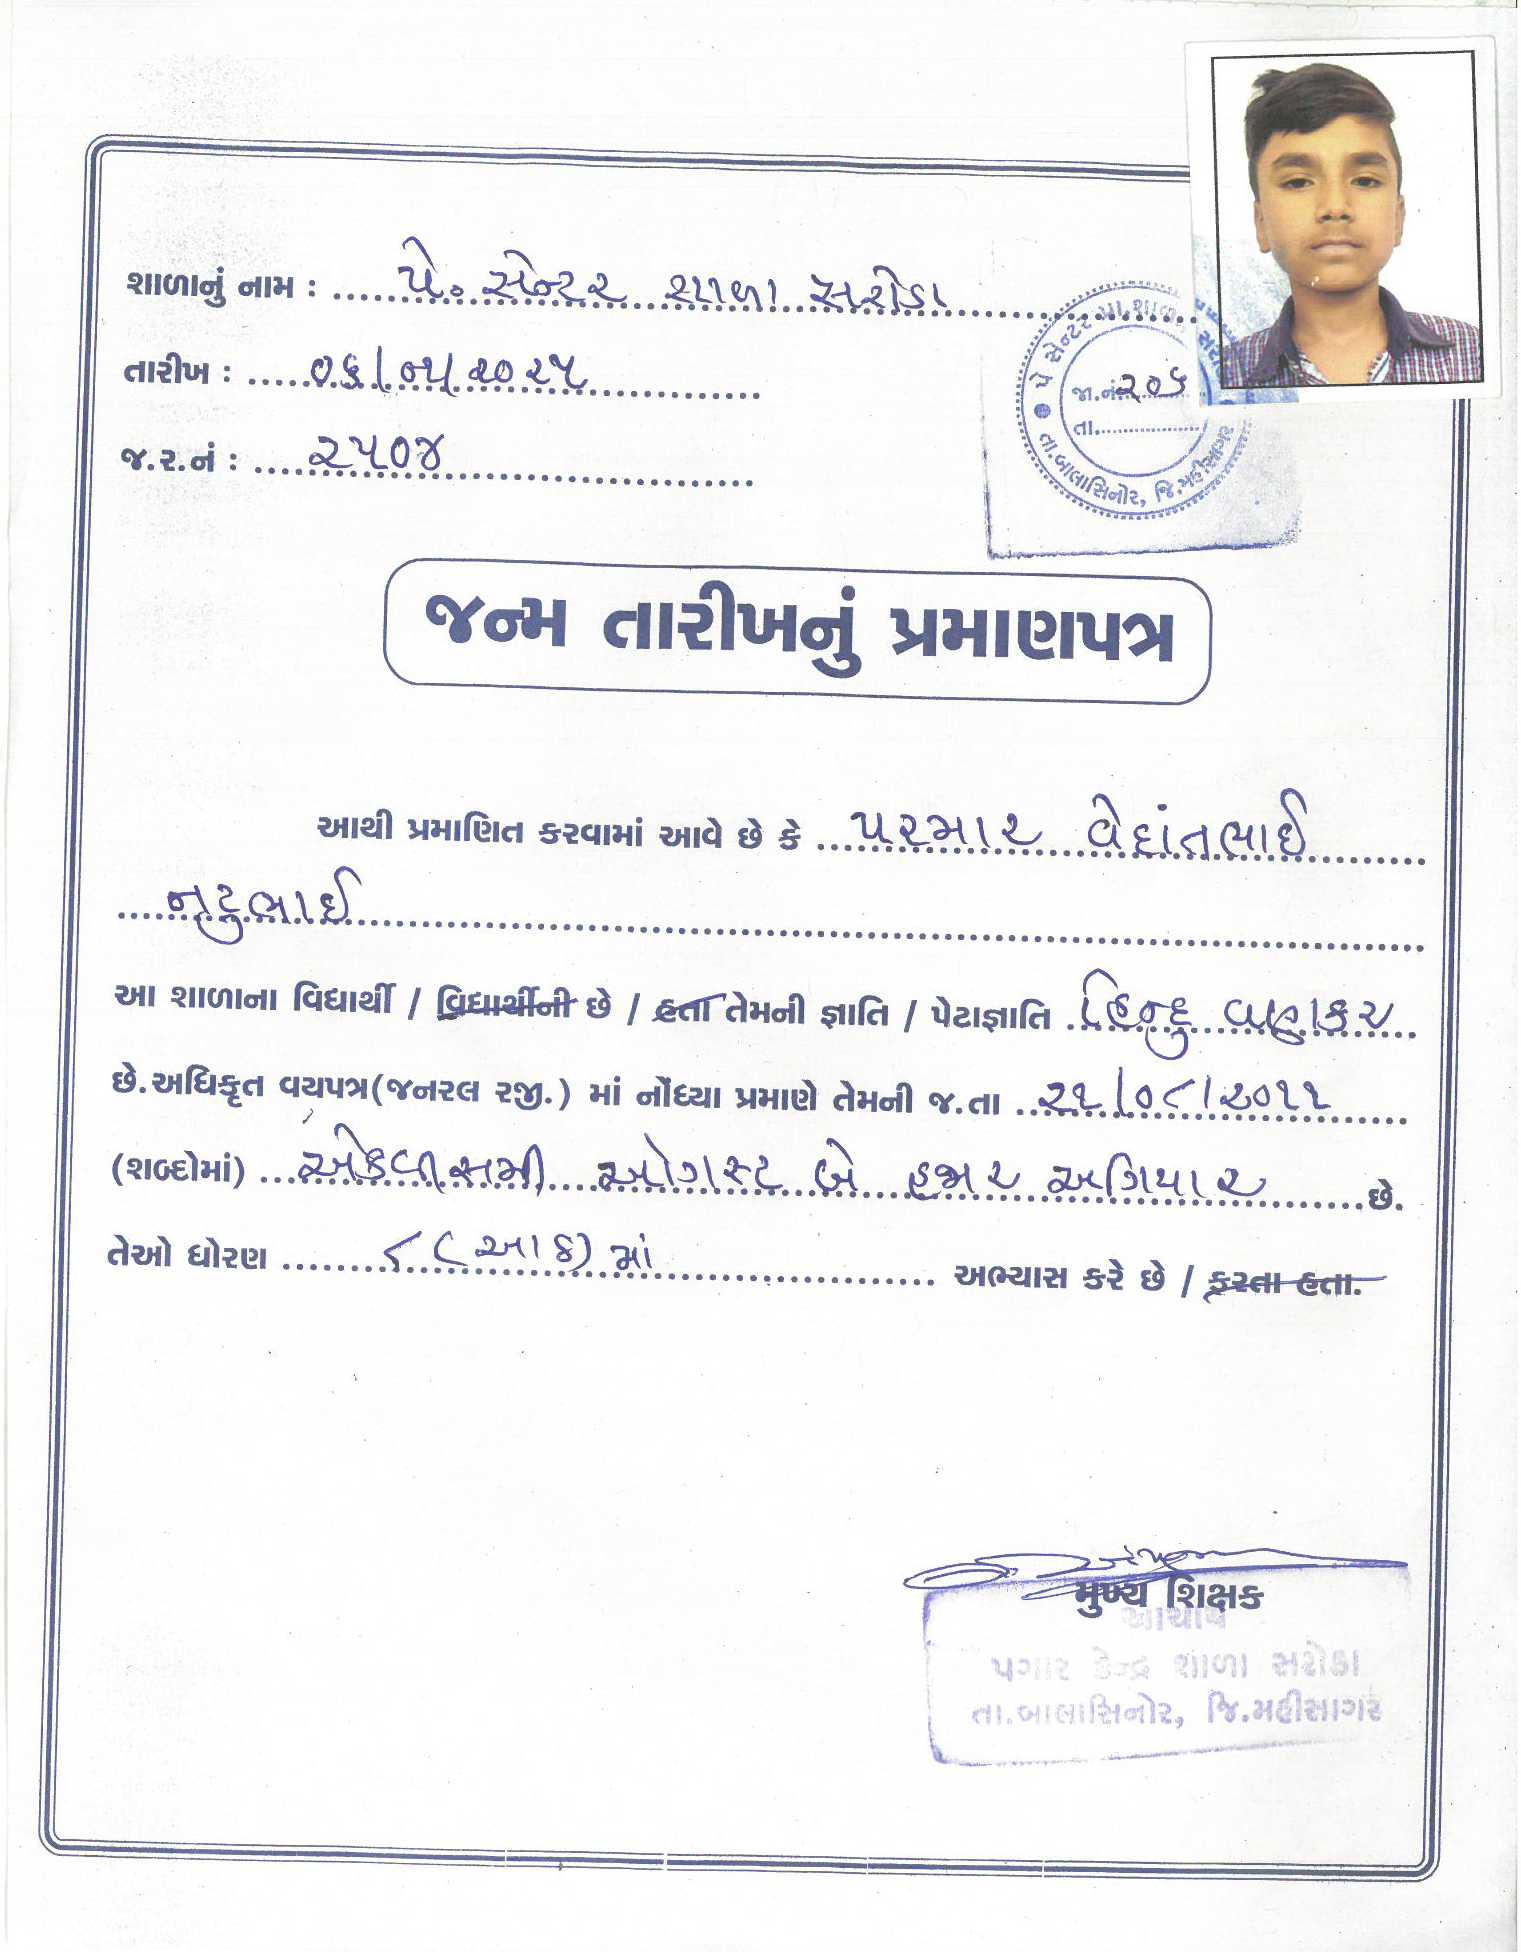 શાળાનું નામ : પે. સેન્ટર શાળા સરોડા
તારીખ : ૦૬/૦૫/૨૦૨૫
જ.ર.નં : ૨૫૦૪
પે સેન્ટર પ્રા.શાળા
જા.નં. ૨૦૬
તા.
તા.બાલાસિનોર, જિ.મહીસાગર
જન્મ તારીખનું પ્રમાણપત્ર
આથી પ્રમાણિત કરવામાં આવે છે કે પરમાર વેદાંતભાઈ
નટુભાઈ
આ શાળાના વિદ્યાર્થી / વિદ્યાર્થીની છે / હતા તેમની જ્ઞાતિ / પેટાજ્ઞાતિ હિન્દુ વણકર
છે.અધિકૃત વયપત્ર(જનરલ રજી.) માં નોંધ્યા પ્રમાણે તેમની જ.તા ૨૧/૦૮/૨૦૧૧
(શબ્દોમાં) એકવીસમી ઓગસ્ટ બે હજાર અગિયાર છે.
તેઓ ધોરણ ૮ (આઠ) માં અભ્યાસ કરે છે / કરતા હતા.
મુખ્ય શિક્ષક
આચાર્ય
પગાર કેન્દ્ર શાળા સરોડા
તા.બાલાસિનોર, જિ.મહીસાગર